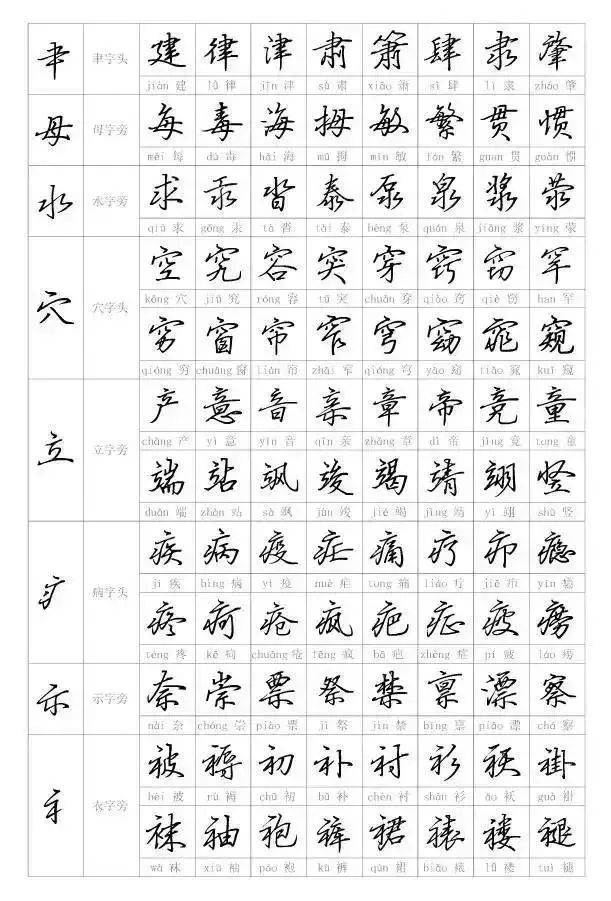 聿 聿字头 建 律 津 肃 箫 肆 隶 肇
jiàn 建 lǜ 律 jīn 津 sù 肃 xiāo 萧 sì 肆 lì 隶 zhào 肇
母 母字旁 每 毒 海 拇 敏 繁 贯 惯
měi 每 dú 毒 hǎi 海 mǔ 拇 mǐn 敏 fán 繁 guàn 贯 guàn 惯
水 水字旁 求 汞 沓 泰 泵 泉 浆 荥
qiú 求 gǒng 汞 tà 沓 tài 泰 bèng 泵 quán 泉 jiāng 浆 yíng 荥
穴 穴字头 空 究 容 突 穿 窍 窃 罕
kōng 穴 jiū 究 róng 容 tū 突 chuān 穿 qiào 窍 qiè 窃 han 罕
穷 窗 帘 窄 穹 窈 窕 窥
qióng 穷 chuāng 窗 lián 帘 zhǎi 窄 qióng 穹 yǎo 窈 tiǎo 窕 kuī 窥
立 立字旁 产 意 音 亲 章 帝 竞 童
chǎng 产 yì 意 yīn 音 qīn 亲 zhāng 章 dì 帝 jìng 竞 tong 童
端 站 飒 竣 竭 靖 翊 竖
duān 端 zhàn 站 sà 飒 jùn 竣 jié 竭 jìng 靖 yì 翊 shù 竖
疒 病字头 疾 病 疫 疟 痛 疗 疖 瘾
jí 疾 bìng 病 yì 疫 nuè 疟 tong 痛 liáo 疗 jiē 疖 yǐn 瘾
疼 疴 疮 疯 疤 症 疲 痨
téng 疼 kē 疴 chuāng 疮 fēng 疯 bā 疤 zhèng 症 pí 疲 láo 痨
示 示字旁 奈 崇 票 祭 禁 禀 漂 察
nài 奈 chóng 崇 piào 票 jì 祭 jìn 禁 bǐng 禀 piāo 漂 chá 察
衤 衣字旁 被 褥 初 补 衬 衫 袄 褂
bèi 被 rù 褥 chū 初 bǔ 补 chèn 衬 shān 衫 ǎo 袄 guà 褂
袜 袖 袍 裤 裙 裱 褛 褪
wà 袜 xiù 袖 páo 袍 kù 裤 qún 裙 biǎo 裱 lǚ 褛 tuì 褪